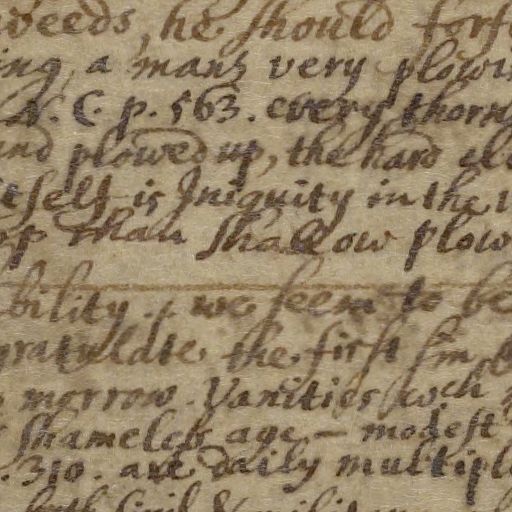 weeds, he should forf
ing, a mans very plowi
N. C. p. 563. every thorn
and plowed up, the hard
itself is Iniquity in the
than shallow plow
bility. we seem to be
gratulate the first
morrow. Vanities wch
shameless age – modest
. 310. are daily multipl
both Civil &